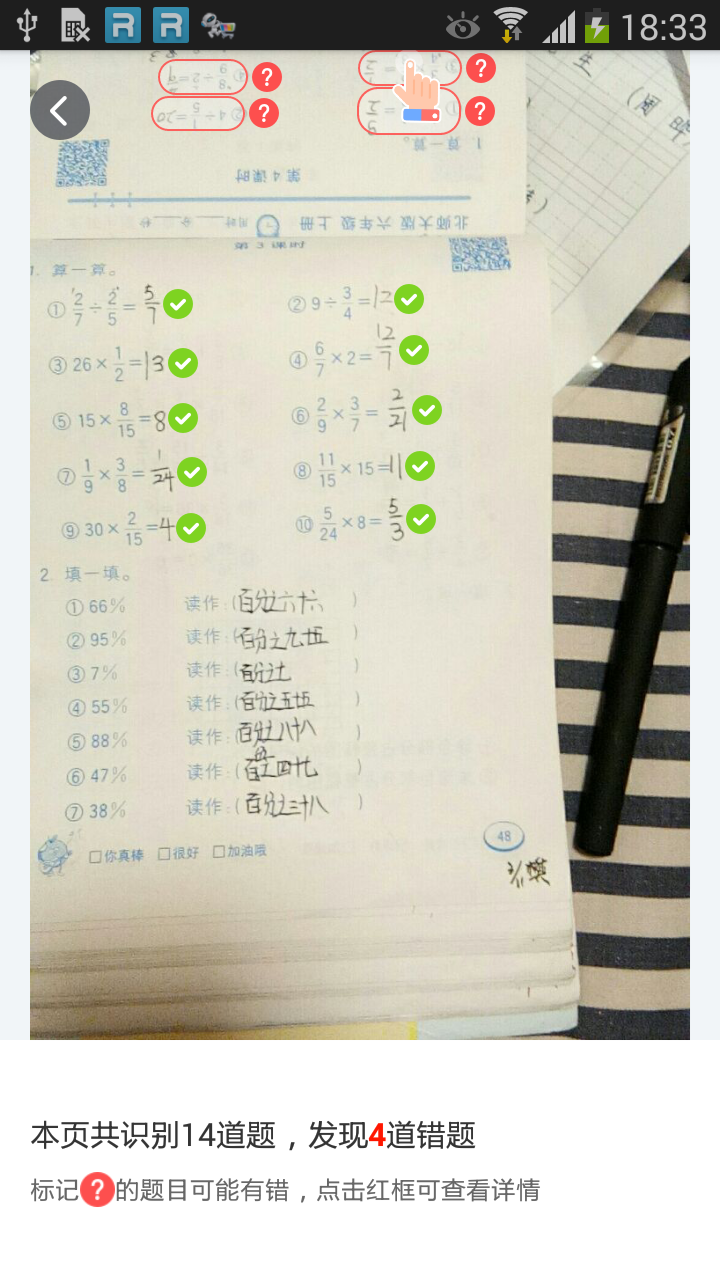 18:33
② 4÷1/5=20
1. 算一算。
第4课时
北师大版 六年级 上册 用时___分___秒
第3课时
1. 算一算。
① 2/7÷2/5=5/7 ② 9÷3/4=12
③ 26×1/2=13 ④ 6/7×2=12/7
⑤ 15×8/15=8 ⑥ 2/9×3/7=2/21
⑦ 1/9×3/8=1/24 ⑧ 11/15×15=11
⑨ 30×2/15=4 ⑩ 5/24×8=5/3
2. 填一填。
① 66% 读作:(百分之六十六)
② 95% 读作:(百分之九十五)
③ 7% 读作:(百分之七)
④ 55% 读作:(百分之五十五)
⑤ 88% 读作:(百分之八十八)
⑥ 47% 读作:(百分之四十七)
⑦ 38% 读作:(百分之三十八)
□你真棒 □很好 □加油哦
48
本页共识别14道题，发现4道错题
标记?的题目可能有错，点击红框可查看详情